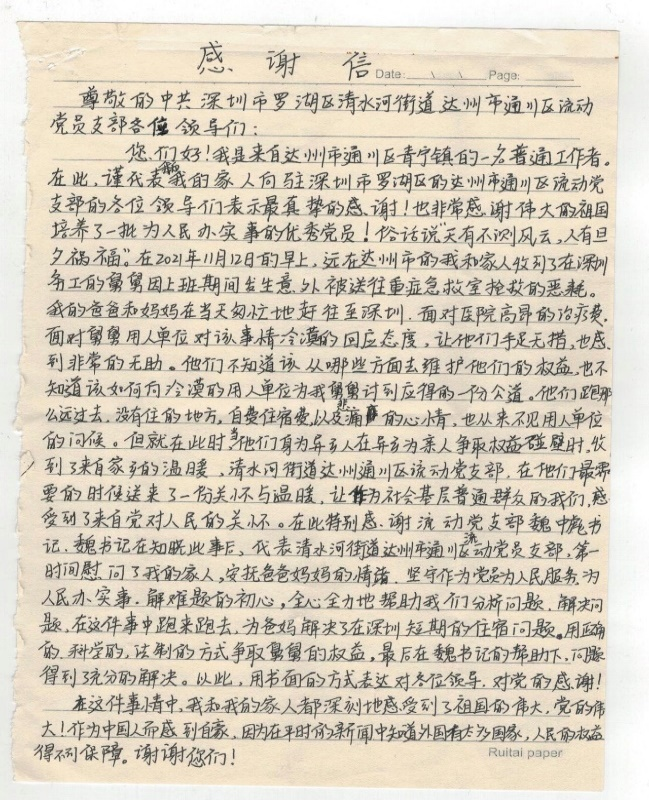 感谢信
Date: \ \ Page:
尊敬的中共深圳市罗湖区清水河街道达州市通川区流动
党员支部各位领导们:
您们好!我是来自达州市通川区青宁镇的一名普通工作者。
在此,谨代表我和我的家人向驻深圳市罗湖区的达州市通川区流动党
支部的各位领导们表示最真挚的感谢!也非常感谢伟大的祖国
培养了一批为人民办实事的优秀党员!俗话说“天有不测风云,人有旦
夕祸福”。在2021年11月12日的早上,远在达州市的我和家人收到了在深圳
务工的舅舅因上班期间发生意外被送往重症急救室抢救的恶耗。
我的爸爸和妈妈在当天匆忙地赶往至深圳。面对医院高昂的治疗费,
面对舅舅用人单位对该事情冷漠的回应态度,让他们手足无措,也感
到非常的无助。他们不知道该从哪些方面去维护他们的权益,也不
知道该如何向冷漠的用人单位为我舅舅讨到应得的一份公道。他们跑那
么远过去,没有住的地方,自费住宿费,以及悲痛的心情,也从来不见用人单位
的问候。但就在此时,当他们身为异乡人在异乡为亲人争取权益碰壁时,收
到了来自家乡的温暖,清水河街道达州通川区流动党支部,在他们最需
要的时候送来了一份关怀与温暖,让作为社会基层普通群众的我们,感
受到了来自党对人民的关怀。在此特别感谢流动党支部魏中彪书
记,魏书记在知晓此事后,代表清水河街道达州市通川区流动党员支部,第一
时间慰问了我的家人,安抚爸爸妈妈的情绪,坚守作为党员为人民服务,为
人民办实事,解难题的初心,全心全力地帮助我们分析问题,解决问
题,在这件事中跑来跑去,为爸妈解决了在深圳短期的住宿问题。用正确
的,科学的,法制的方式争取舅舅的权益,最后在魏书记的帮助下,问题
得到了充分的解决。以此,用书面的方式表达对各位领导,对党的感谢!
在这件事情中,我和我的家人都深刻地感受到了祖国的伟大,党的伟
大!作为中国人而感到自豪,因为在平时的新闻中知道外国有太多国家,人民的权益
得不到保障。谢谢您们!
Ruitai paper